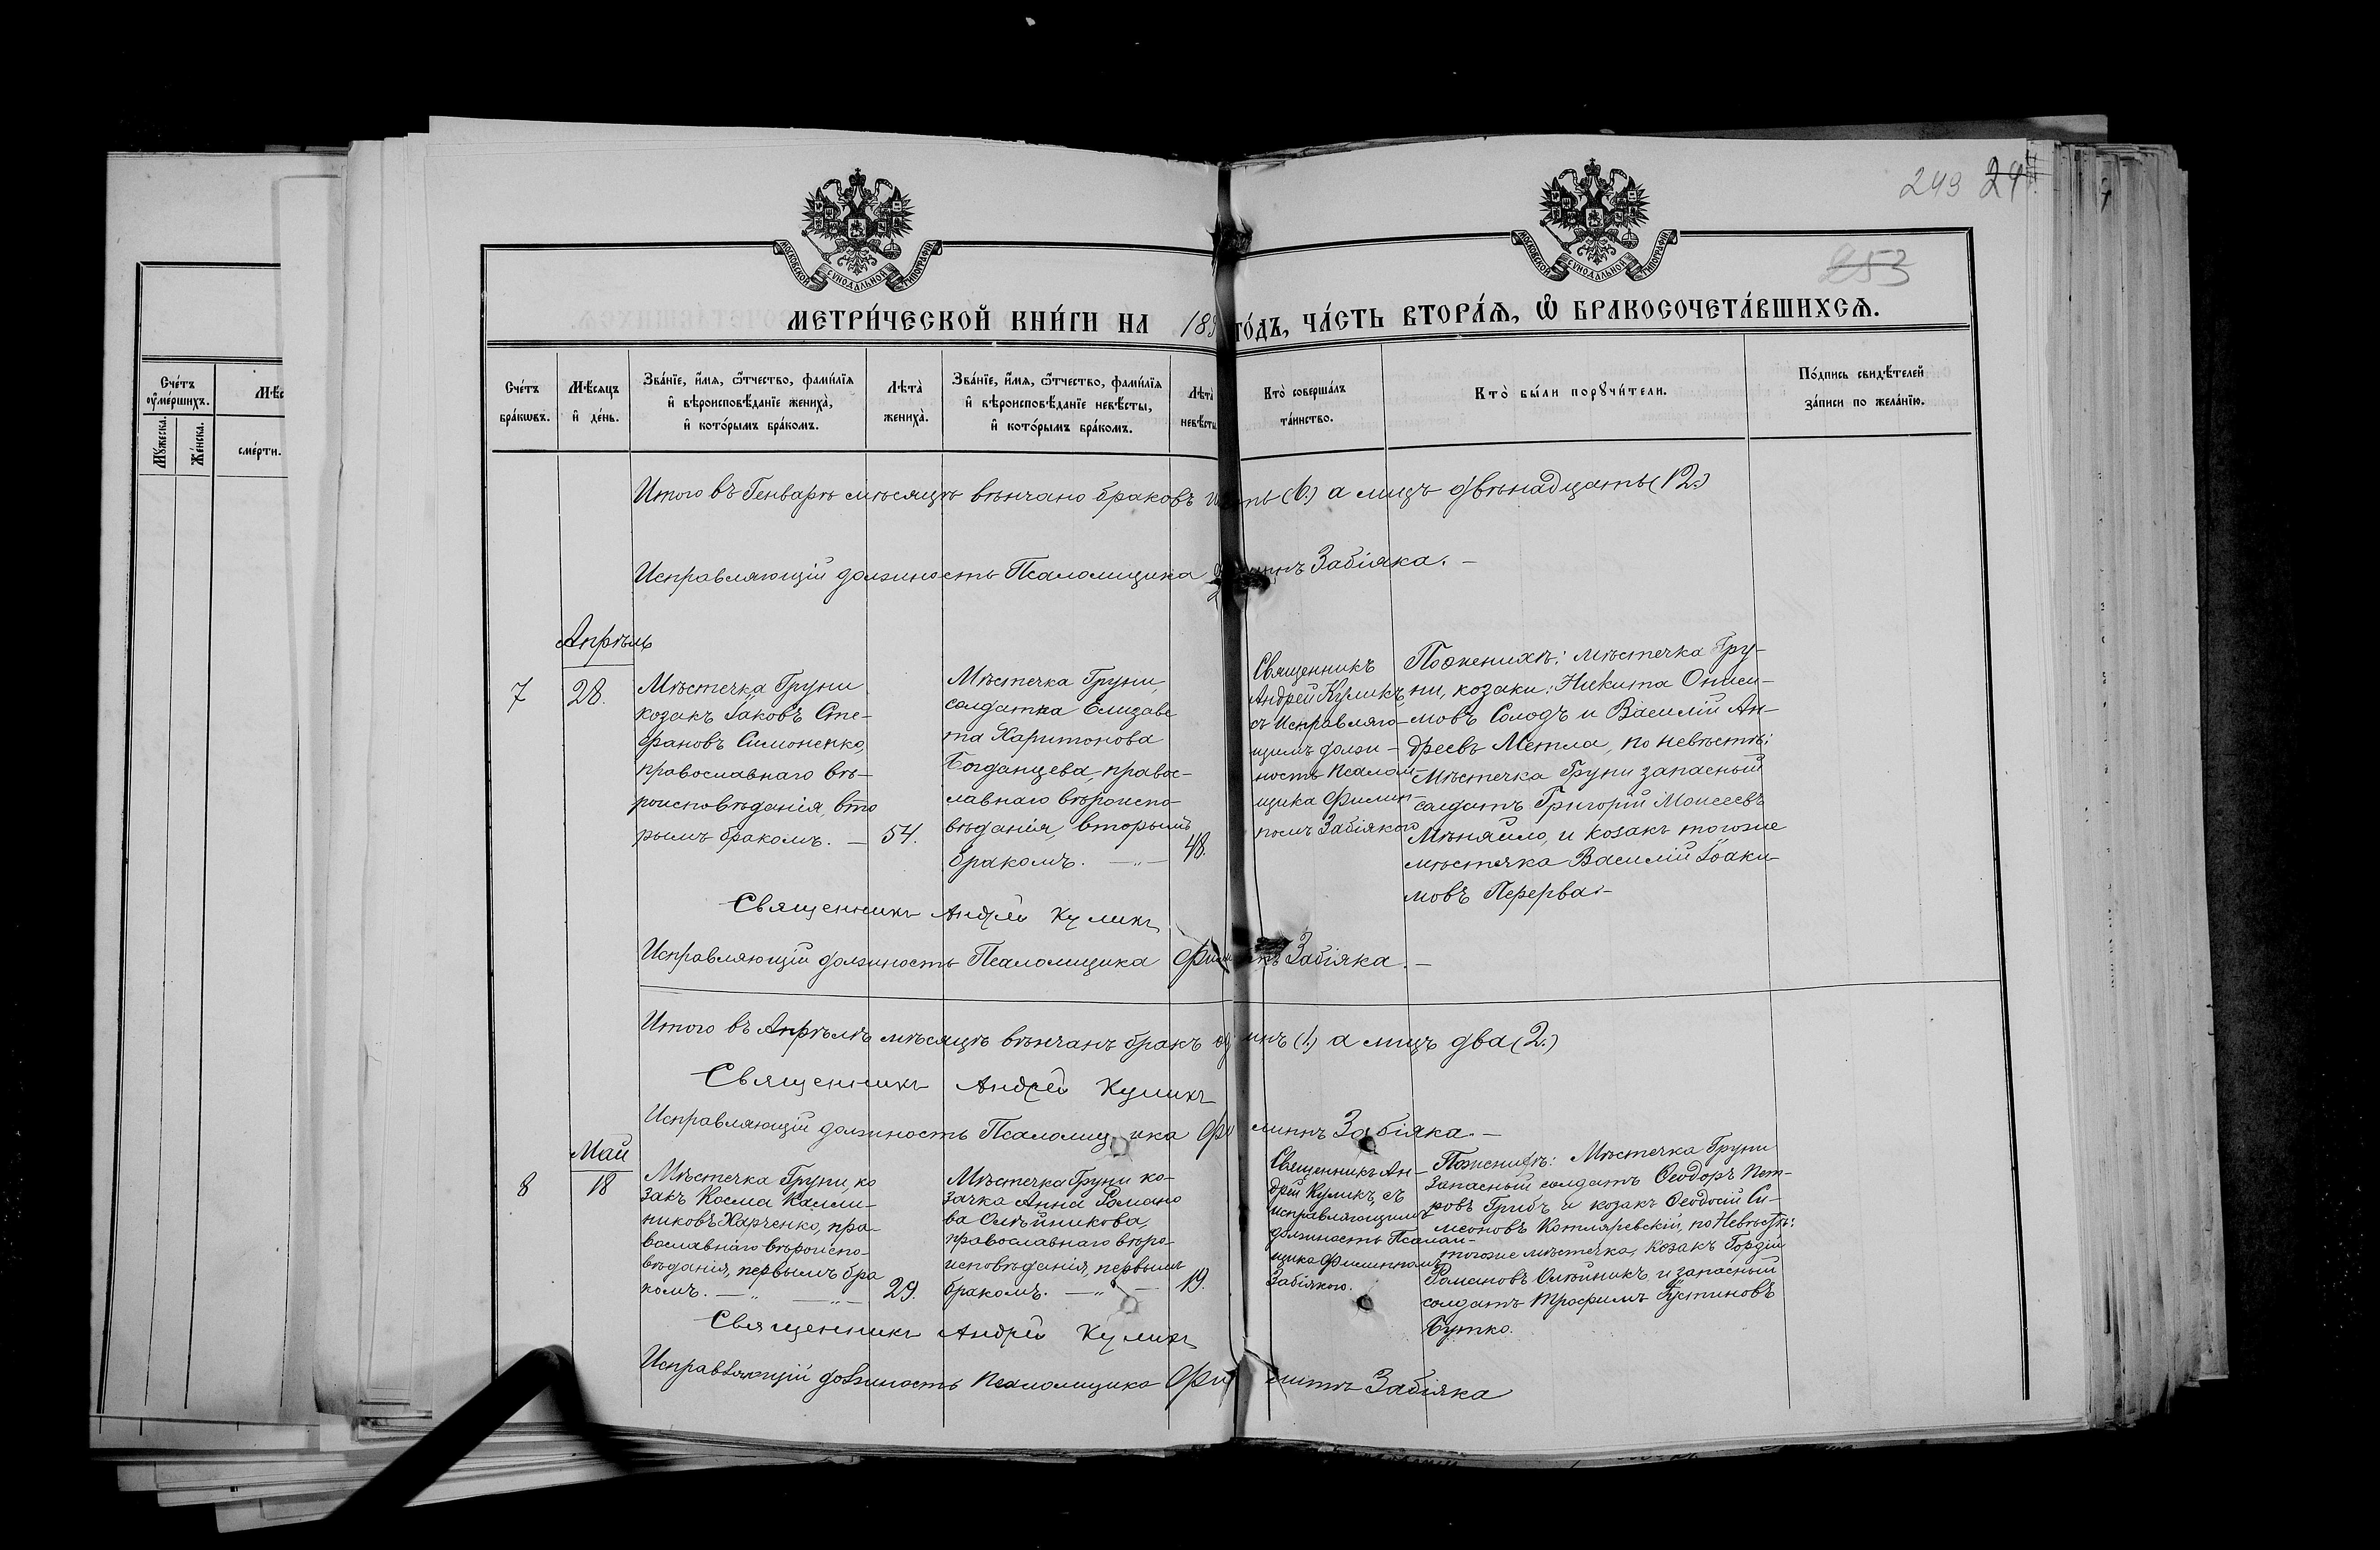 243 24
253
МОСКОВСКОЙ СѴНОДАЛЬНОЙ ТИПОГРАФІИ
МОСКОВСКОЙ СѴНОДАЛЬНОЙ ТИПОГРАФІИ
МЕТРИ́ЧЕСКОЙ КНИ́ГИ НА 189 ГО́ДЪ, ЧА́СТЬ ВТОРА́Ѧ, Ѽ БРАКОСОЧЕТА́ВШИХСѦ.
Сче́тъ
оу҆ме́ршихъ.
Мꙋ́жеска.
Же́нска.
Мѣ́с
сме́рти.
Сче́тъ
бра́кѡвъ.
Мѣ́сѧцъ
и҆ де́нь.
Зва́нїе, и҆́мѧ, ѻ҆́тчество, фами́лїѧ
и҆ вѣроисповѣ́данїе жениха̀,
и҆ кото́рымъ бра́комъ.
Лѣта̀
жениха̀.
Зва́нїе, и҆́мѧ, ѻ҆́тчество, фами́лїѧ
и҆ вѣроисповѣ́данїе невѣ́сты,
и҆ кото́рымъ бра́комъ.
Лѣта̀
невѣ́сты
Кто̀ соверша́лъ
та́инство.
Кто̀ бы́ли порꙋчи́тели.
По́дпись свидѣ́телей
за́писи по жела́нїю.
Итого въ Генварѣ мѣсяцѣ вѣнчано браковъ шесть (6.) а лицъ двѣнадцать (12.)
Исправляющій должность Псаломщика Забіяка. —
Апрѣль
7
28.
Мѣстечка Груни
козакъ Іаковъ Сте-
фановъ Симоненко,
православнаго вѣ-
роисповѣданія, вто
рымъ бракомъ. —
54.
Мѣстечка Груни,
солдатка Елизаве
та Харитонова
Богданцева, правос-
лавнаго вѣроиспо-
вѣданія, вторымъ
бракомъ. —„—
48.
Священникъ
Андрей Куликъ
съ Исправляю-
щимъ долж-
ность Псалом-
щика Филип-
помъ Забіякою
По женихѣ: мѣстечка Гру-
ни, козаки: Никита Ониси-
мовъ Солодъ и Василій Ан-
дреевъ Метла, по невѣстѣ:
Мѣстечка Груни запасный
солдатъ Григорій Моисеевъ
Мѣняйло, и козакъ тогоже
мѣстечка Василій Іоаки-
мовъ Перерва. —
Священникъ Андрей Куликъ
Исправляющій должность Псаломщика Филиппъ Забіяка. —
Итого въ Апрѣлѣ мѣсяцѣ вѣнчанъ бракъ одинъ (1.) а лицъ два (2.)
Священникъ Андрей Куликъ
Исправляющій должность Псаломщика Филиппъ Забіяка. —
Май
8
18
Мѣстечка Груни, ко
закъ Косма Калли-
никовъ Харченко, пра-
вославнаго вѣроиспо-
вѣданія, первымъ бра
комъ. —„— —„—
29.
Мѣстечка Груни ко-
зачка Анна Романо
ва Олѣйникова,
православнаго вѣро-
исповѣданія, первымъ
бракомъ. —„—
19.
Священникъ Ан-
дрей Куликъ, съ
исправляющимъ
должность Псалом-
щика Филиппомъ
Забіякою.
По женихѣ: Мѣстечка Груни
Запасный солдатъ Ѳеодоръ Пет-
ровъ Грибъ и козакъ Ѳеодосій Си-
меоновъ Котляревскій, по Невѣстѣ:
тогоже мѣстечка, козакъ Гордій
Романовъ Олѣйникъ и запасный
солдатъ Трофимъ Іустиновъ
Бутко.
Священникъ Андрей Куликъ
Исправляющій должность Псаломщика Филиппъ Забіяка